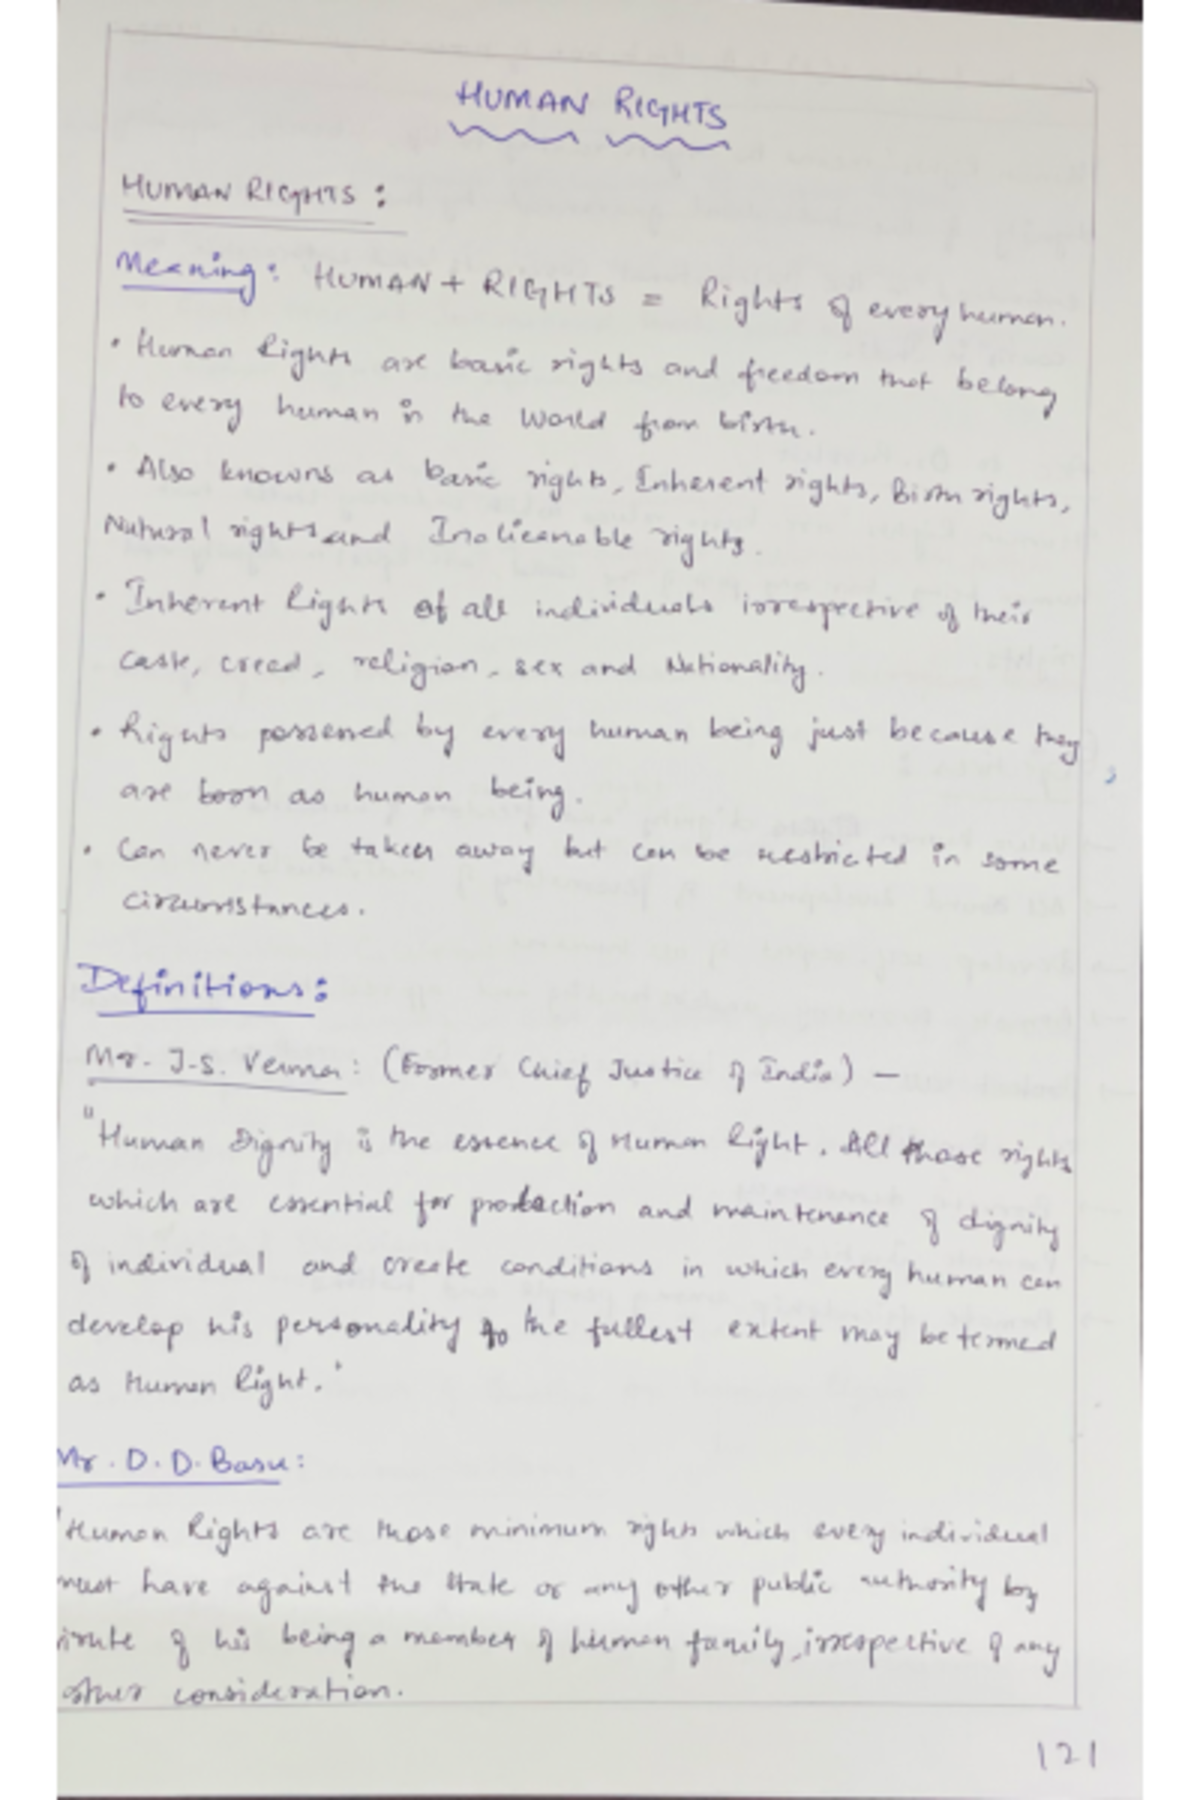 HUMAN RIGHTS
HUMAN RIGHTS :
Meaning : HUMAN + RIGHTS = Rights of every human.
• Human Rights are basic rights and freedom that belong
to every human in the World from birth.
• Also knowns as basic rights, Inherent rights, Birth rights,
Natural rights and Inalieanable rights.
• Inherent Rights of all individuals irrespective of their
caste, creed, religion, sex and Nationality.
• Rights possessed by every human being just because they
are born as human being.
• Can never be taken away but can be restricted in some
circumstances.
Definitions :
Mr. J.S. Verma : (Former Chief Justice of India) —
"Human Dignity is the essence of Human Right. All those rights
which are essential for protection and maintenance of dignity
of individual and create conditions in which every human can
develop his personality to the fullest extent may be termed
as Human Right."
Mr. D. D. Basu :
"Human Rights are those minimum rights which every individual
must have against the State or any other public authority by
virute of his being a member of human family, irrespective of any
other consideration.
121